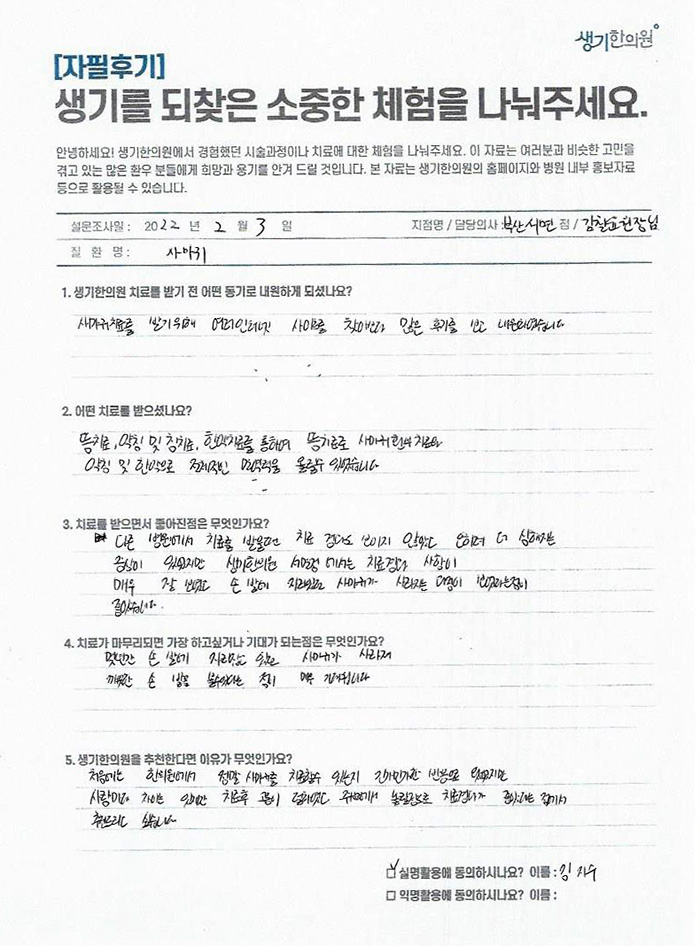 생기한의원
[자필후기]
생기를 되찾은 소중한 체험을 나눠주세요.
안녕하세요! 생기한의원에서 경험했던 시술과정이나 치료에 대한 체험을 나눠주세요. 이 자료는 여러분과 비슷한 고민을
겪고 있는 많은 환우 분들에게 희망과 용기를 안겨 드릴 것입니다. 본 자료는 생기한의원의 홈페이지와 병원 내부 홍보자료
등으로 활용될 수 있습니다.
설문조사일 : 2022 년 2 월 3 일 지점명 / 담당의사 : 부산서면 점 / 원장님
질 환 명 : 사마귀
1. 생기한의원 치료를 받기 전 어떤 동기로 내원하게 되셨나요?
사마귀치료를 받기위해 여러인터넷 사이트를 찾아보다 많은 후기를 보고 내원하였습니다
2. 어떤 치료를 받으셨나요?
뜸치료, 약침 및 침치료, 한약치료를 통하여 뜸치료로 사마귀
약침 및 한약으로 전체적인 면역력을 올릴수 있었습니다
3. 치료를 받으면서 좋아진점은 무엇인가요?
다른 병원에서 치료를 받을때는 치료 경과도 보이지 않았고 오히려 더 심해지는
증상이 있었지만 생기한의원 서면점에서는 치료경과 사항이
매우 잘 보였고 손 발에 자리잡은 사마귀가 사라지는 보였다는점이
좋았습니다.
4. 치료가 마무리되면 가장 하고싶거나 기대가 되는점은 무엇인가요?
몇년간 손 발에 자리잡고 있던 사마귀가 사라져
깨끗한 손 발을 볼수있다는 점이 매우 기대됩니다
5. 생기한의원을 추천한다면 이유가 무엇인가요?
처음에는 한의원에서 정말 사마귀를 치료할수 있는지 반응으로 있었지만
사람마다 차이는 있지만 치료후 치료경과가 좋았다는 점에서
추천드리고 싶습니다
실명활용에 동의하시나요? 이름 : 김지수
익명활용에 동의하시나요? 이름 :